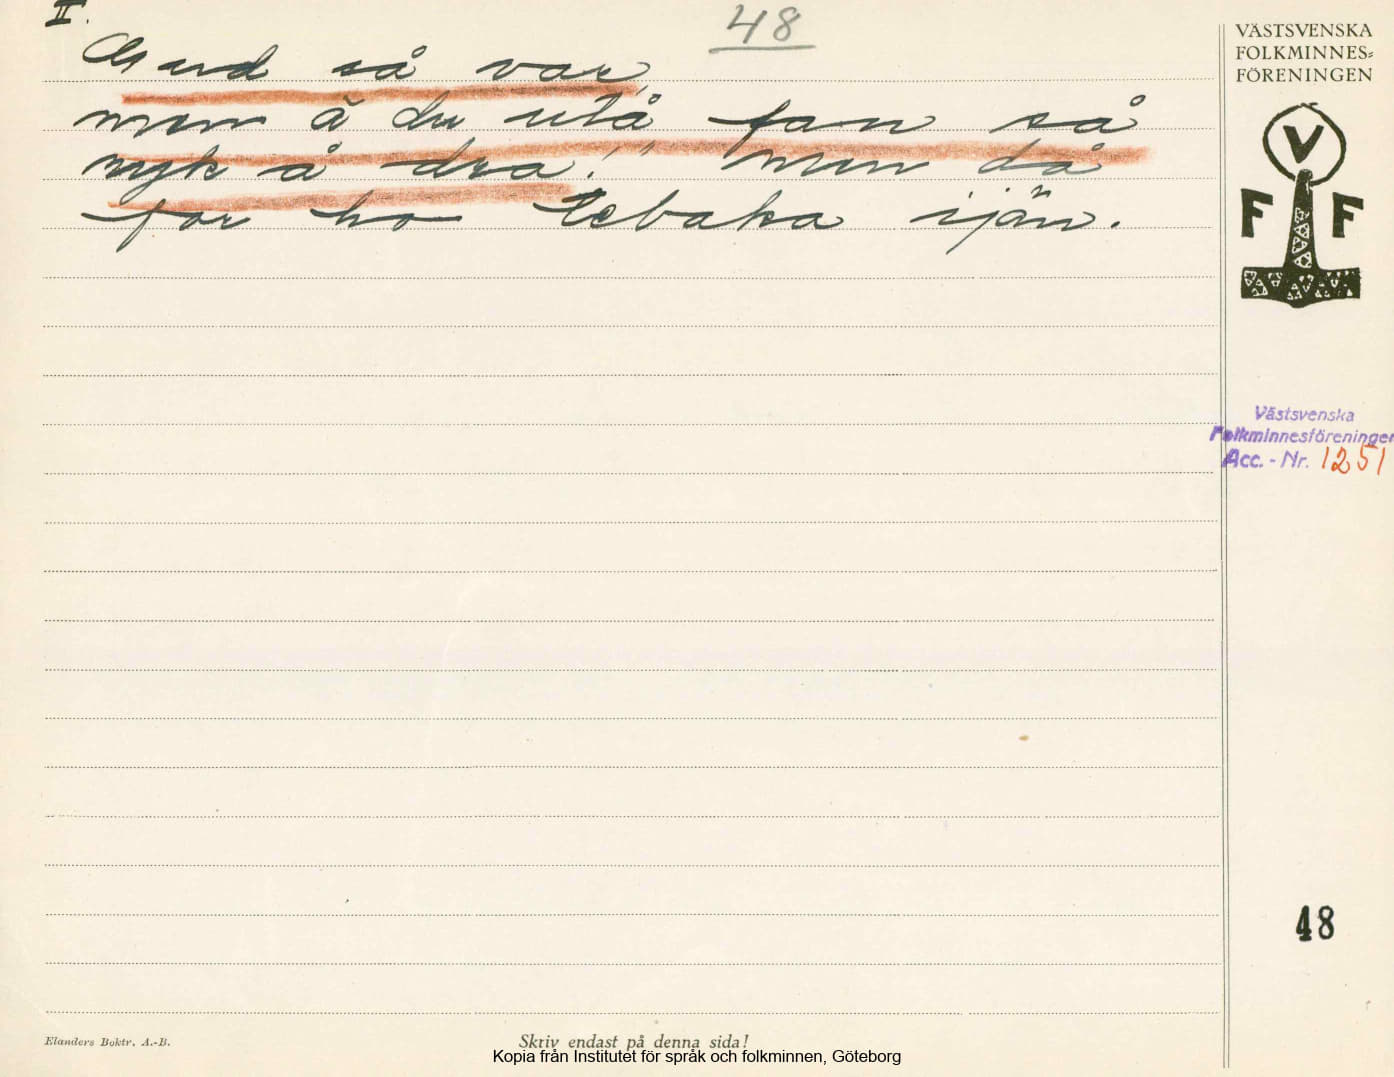 II.
48
Gud så var,
men ä du utå fan så
ryk å dra!" men då
for ho tebaka ijän.
VÄSTSVENSKA
FOLKMINNES-
FÖRENINGEN
V
F F
Västsvenska
Folkminnesföreningen
Acc. - Nr. 1251
48
Elanders Boktr. A.-B.
Skriv endast på denna sida!
Kopia från Institutet för språk och folkminnen, Göteborg